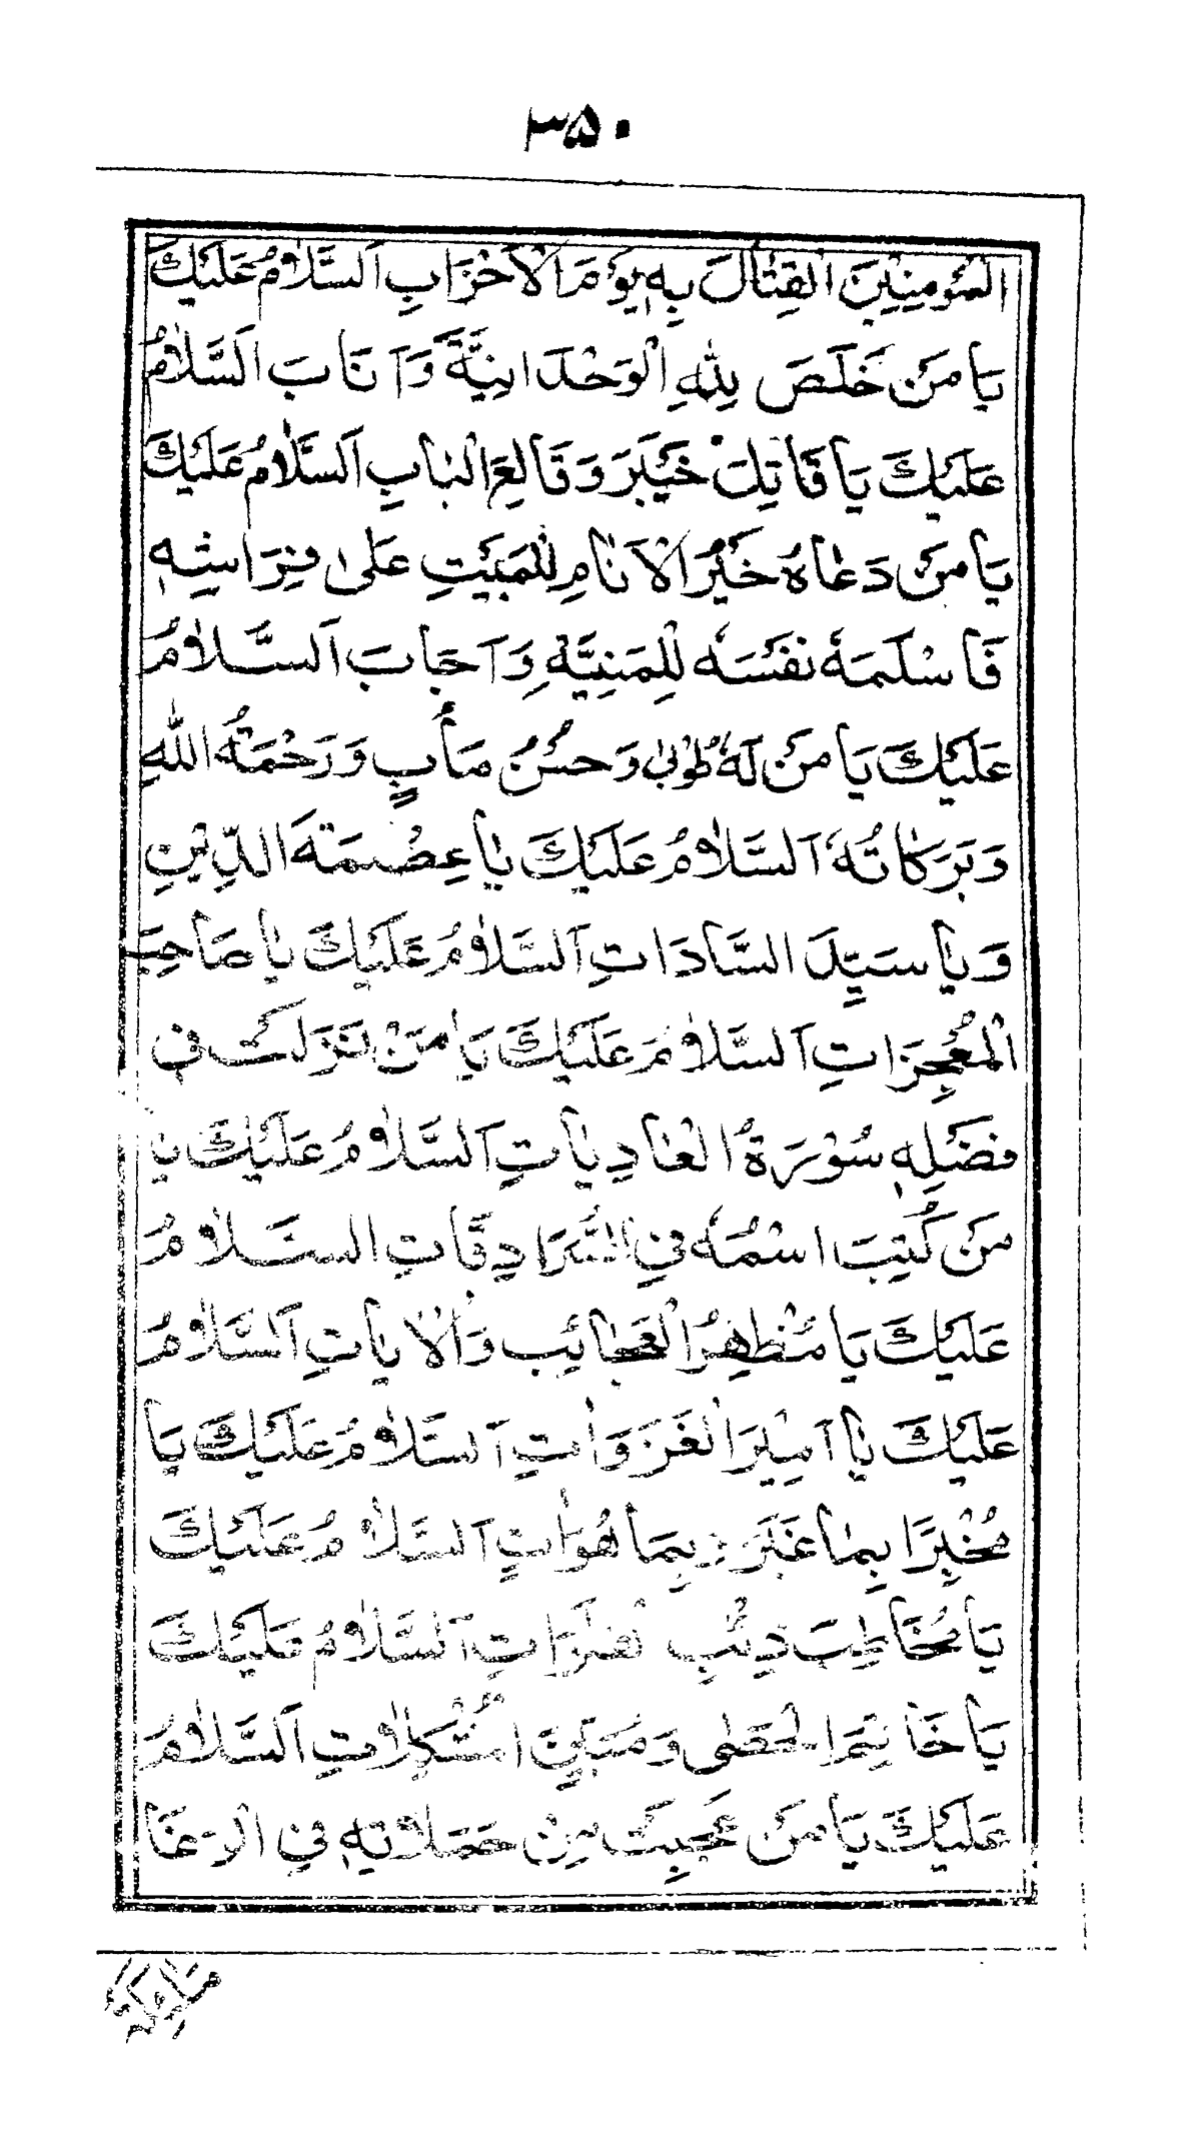 ۳۵۰
الْمُؤمِنِيْنَ الْقِتٰالَ بِهٖ يَوْمَ الْاَحْزَابِ اَلسَّلٰامُ عَلَيْكَ
يَا مَنْ خَلَصَ لِلّٰهِ الْوَحْدَانِيَّةَ وَاَنَابَ اَلسَّلٰامُ
عَلَيْكَ يَا قَاتِلَ خَيْبَرَ وَقَالِعَ الْبٰابِ اَلسَّلٰامُ عَلَيْكَ
يَا مَنْ دَعٰاهُ خَيْرُ الْاَنٰامِ لِلْمَبَيْتِ عَلىٰ فِرَاشِهٖ
فَاَسْلَمَهٗ نَفْسَهٗ لِلْمَنِيَّةِ وَاَجَابَ اَلسَّلٰامُ
عَلَيْكَ يَا مَنْ لَهٗ طُوْبٰى وَحُسْنُ مَأٰبٍ وَرَحْمَةُ اللّٰهِ
وَبَرَكَاتُهٗ اَلسَّلٰامُ عَلَيْكَ يٰا عِصْمَةَ الدِّيْنِ
وَيٰا سَيِّدَ السَّادَاتِ اَلسَّلٰامُ عَلَيْكَ يٰا صَاحِبَ
الْمُعْجِزَاتِ اَلسَّلٰامُ عَلَيْكَ يَا مَنْ نَزَلَتْ فِى
فَضْلِهٖ سُوْرَةُ الْعٰادِيٰاتِ اَلسَّلٰامُ عَلَيْكَ يٰا
مَنْ كُتِبَ اسْمُهٗ فِى السُّرَادِقَاتِ السَّلٰامُ
عَلَيْكَ يَا مُظْهِرَ الْعَجٰائِبِ وَالْاٰيٰاتِ اَلسَّلٰامُ
عَلَيْكَ يٰا اَمِيْرَ الْغَزَوٰاتِ اَلسَّلٰامُ عَلَيْكَ يَا
مُخْبِرًا بِمٰا غَبَرَ وَبِمَا هُوَ اٰتٍ اَلسَّلٰامُ عَلَيْكَ
يَا مُخَاطِبَ ذِئْبِ الْفَلَوَاتِ اَلسَّلٰامُ عَلَيْكَ
يَا خَاتِمَ الْحَصٰى وَمُبَيِّنَ الْمُشْكِلٰاتِ اَلسَّلٰامُ
عَلَيْكَ يَا مَنْ عَجِبَتْ مِنْ حَمَلٰاتِهٖ فِى الْوَغَا
مَلٰائِكَةُ